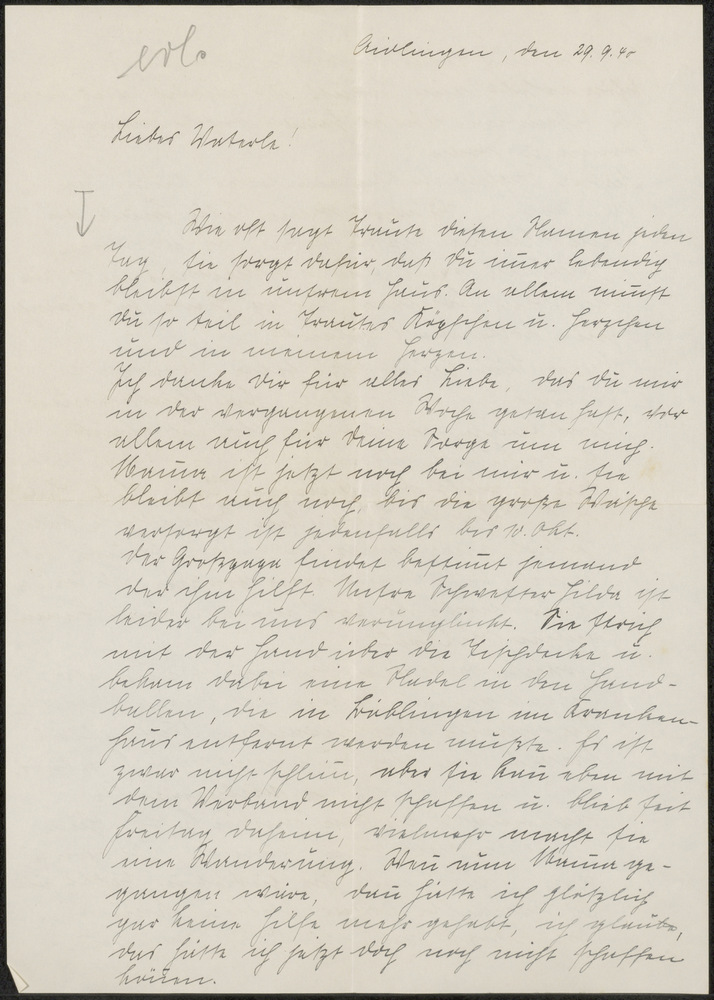 erl.
Aidlingen, den 29.9.40
Liebes Vaterle!
Wie oft sagt Traute diesen Namen jeden
Tag, sie sorgt dafür, daß Du immer lebendig
bleibst in unsrem Haus. An allem nimmst
Du so teil in Trautes Köpfchen u. Herzchen
und in meinem Herzen.
Ich danke Dir für alles Liebe, das Du mir
in der vergangenen Woche getan hast, vor
allem auch für Deine Sorge um mich.
Mama ist jetzt noch bei mir u. sie
bleibt auch noch, bis die große Wäsche
versorgt ist jedenfalls bis 10. Okt.
Der Großpapa findet bestimmt jemand
der ihm hilft. Unsre Schwester Hilde ist
leider bei uns verunglückt. Sie strich
mit der Hand über die Tischdecke u.
bekam dabei eine Nadel in den Hand-
ballen, die in Böblingen im Kranken-
haus entfernt werden mußte. Es ist
zwar nicht schlimm, aber sie kann eben mit
dem Verband nicht schaffen u. blieb seit
Freitag daheim, vielmehr macht sie
eine Wanderung. Wenn nun Mama ge-
gangen wäre, dann hätte ich plötzlich
gar keine Hilfe mehr gehabt, ich glaube,
das hätte ich jetzt doch noch nicht schaffen
können.